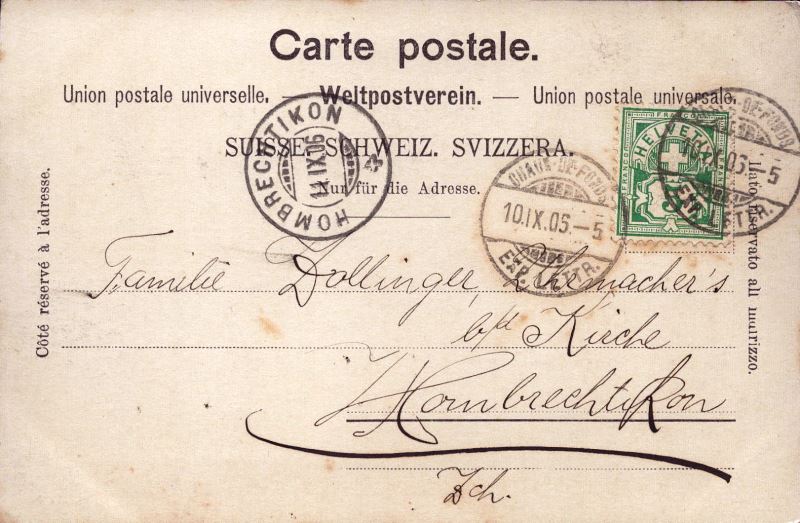 Carte postale.
Union postale universelle. — Weltpostverein. — Union postale universale.
SUISSE. SCHWEIZ. SVIZZERA.
Nur für die Adresse.
Côté réservé à l'adresse.
HOMBRECHTIKON
11.IX.05
CHAUX-DE-FONDS
10.IX.05.–5
EXP. LETTR.
FRANCO
HELVETIA
CHAUX-DE-FONDS
10.IX.05.–5
EXP. LETTR.
Lato riservato all indirizzo.
Familie Dollinger,
b/d Kirche
Hombrechtikon
Zch.